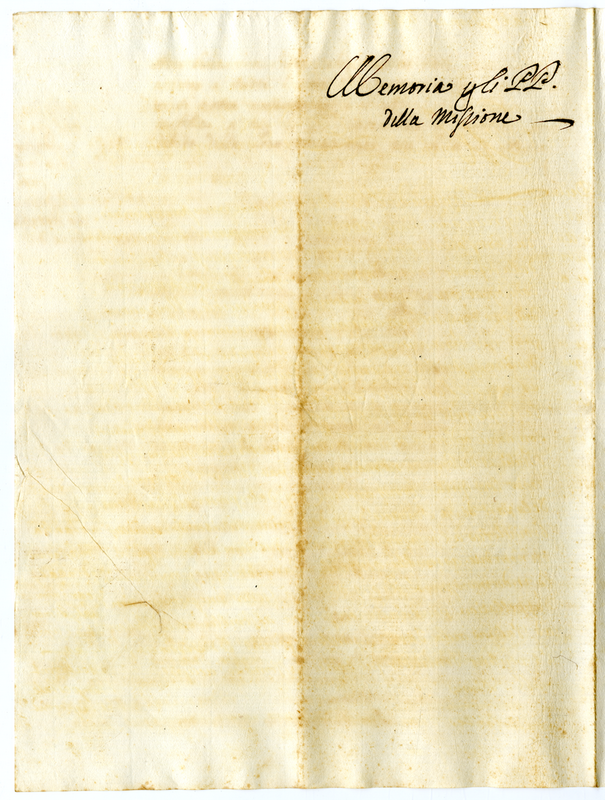 Memoria p gli PP.
della Missione